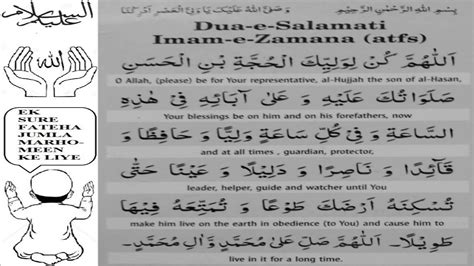 السلام عليكم
الله
EK
SURE
FATEHA
JUMLA
MARHO-
MEEN
KE LIYE
بِسْمِ اللهِ الرَّحْمٰنِ الرَّحِيْمِ
Dua-e-Salamati
Imam-e-Zamana (atfs)
اَللّٰهُمَّ كُنْ لِوَلِيِّكَ الْحُجَّةِ بْنِ الْحَسَنِ
O Allah, (please) be for Your representative, al-Hujjah the son of al-Hasan,
صَلَوَاتُكَ عَلَيْهِ وَ عَلٰى اٰبَائِهِ فِي هٰذِهِ
Your blessings be on him and on his forefathers, now
السَّاعَةِ وَ فِي كُلِّ سَاعَةٍ وَلِيًّا وَ حَافِظًا وَ
and at all times , guardian, protector,
قَائِدًا وَ نَاصِرًا وَ دَلِيْلًا وَ عَيْنًا حَتّٰى
leader, helper, guide and watcher until You
تُسْكِنَهُ اَرْضَكَ طَوْعًا وَ تُمَتِّعَهُ فِيْهَا
make him live on the earth in obedience (to You) and cause him to
طَوِيْلًا. اَللّٰهُمَّ صَلِّ عَلٰى مُحَمَّدٍ وَّاٰلِ مُحَمَّدٍ.
live in it for a long time.